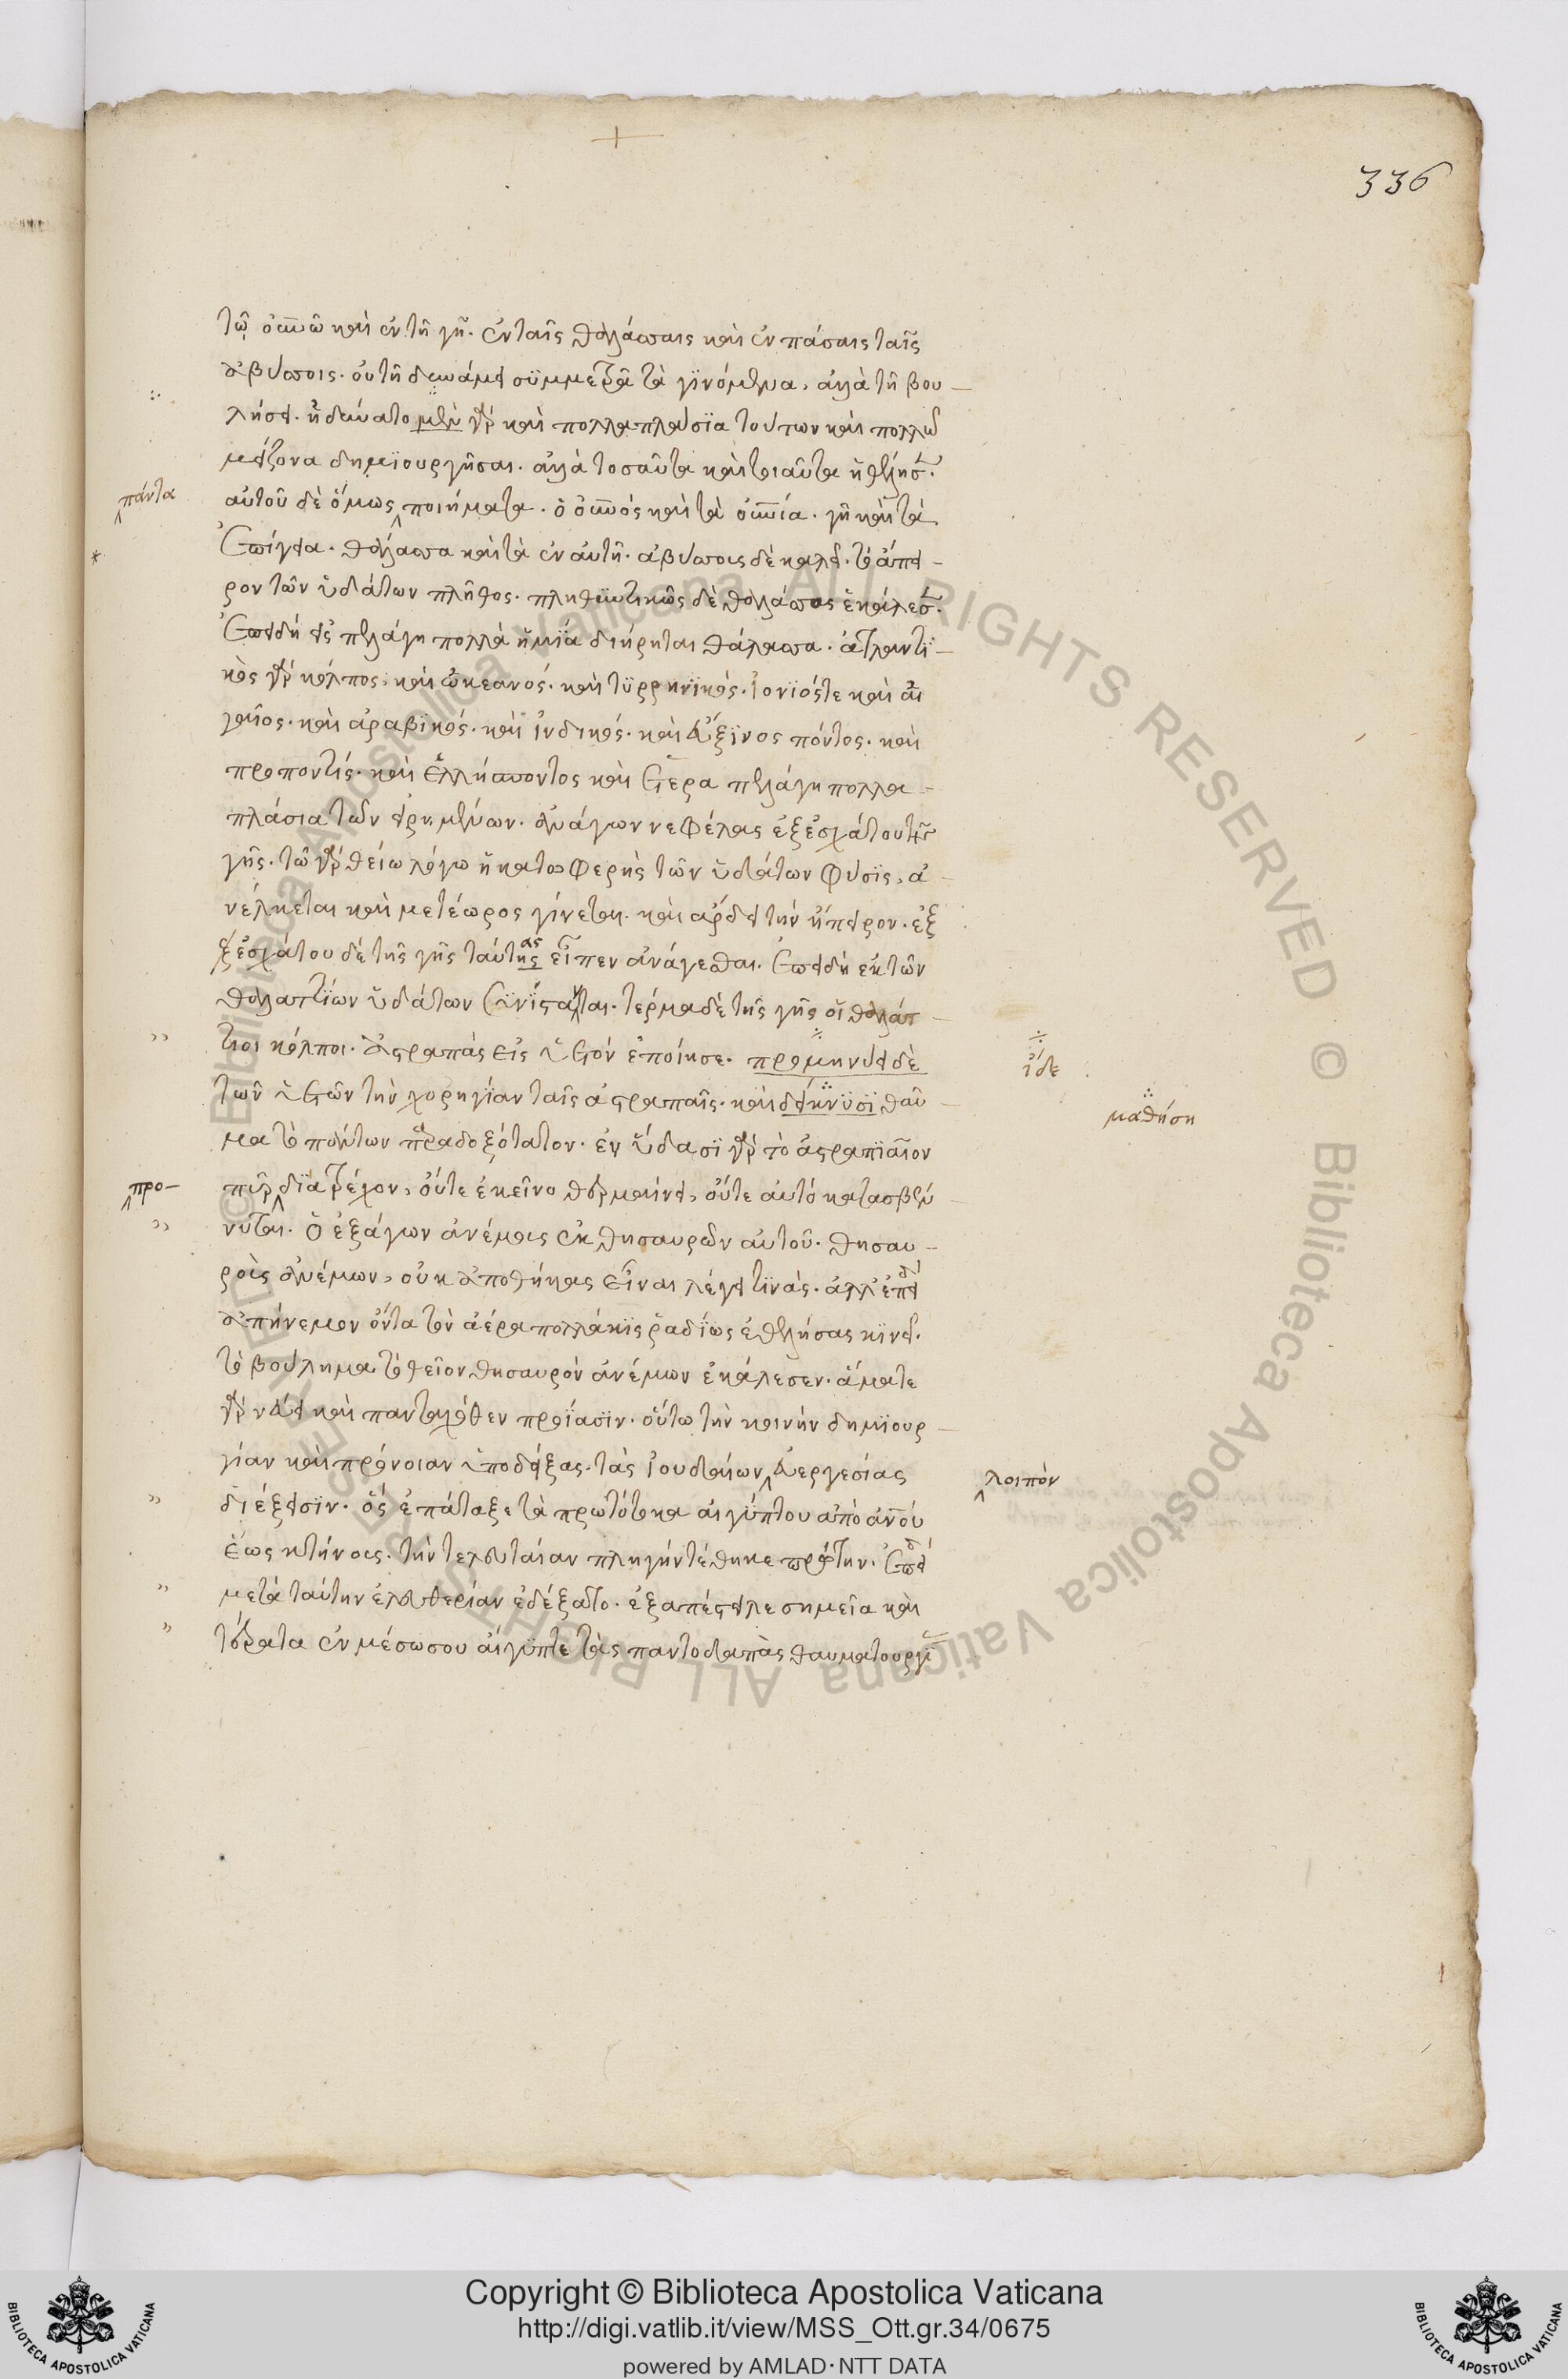 336
τῶ οὐνῶ καὶ ἐν τῆ γῆ. ἐν ταῖς θαλάσσαις καὶ ἐν πάσαις ταῖς
ἀβύσσοις. οὐ τῆ δυνάμει συμμετρεῖ τὰ γϊνόμενα, ἀλλὰ τῆ βου-
λήσει. ἠδύνατο μὲν γὰρ καὶ πολλαπλασϊα τούτων καὶ πολλῶ
μείζονα δημϊουργῆσαι. ἀλλὰ τοσαῦτα καὶ τοιαῦτα ἠθέλησε.
πάντα
αὐτοῦ δὲ ὅμως ποιήματα. ὁ οὐνὸς καὶ τὰ οὐνία. γῆ καὶ τὰ
ἐπίγεια. θάλασσα καὶ τὰ ἐν αὐτῆ. ἀβύσσοις δὲ καλεῖ. τὸ ἄπει-
ρον τῶν ὑδάτων πλῆθος. πληθυντικῶς δὲ θαλάσσας ἐκάλεσε.
ἐπειδὴ εἰς πελάγη πολλὰ ἡ μϊά διήρηται θάλασσα. ἀτλαντϊ-
κὸς γὰρ κόλπος. καὶ ὠκεανός. καὶ τϋρρηνϊκός. ἰονϊός τε καὶ αἰ
γαῖος. καὶ ἀραβϊκός. καὶ ἰνδικός. καὶ εὔξϊνος πόντος. καὶ
προποντίς. καὶ ἑλλήσποντος καὶ ἕτερα πελάγη πολλα-
πλάσια τῶν εἰρημένων. ἀνάγων νεφέλας ἐξ ἐσχάτου τῆς
γῆς. τῶ γὰρ θείω λόγω ἡ κατωφερὴς τῶν ὑδάτων φύσϊς, ἀ-
νέλκεται καὶ μετέωρος γίνεται. καὶ ἄρδει τὴν ἤπειρον. ἐξ
ξ ἐσχάτου δὲ τῆς γῆς ταύτης ας εἶπεν ἀνάγεσθαι. ἐπειδὴ ἐκ τῶν
θαλαττϊων ὑδάτων συνίσταται. τέρμα δὲ τῆς γῆς οἱ θαλάτ-
τιοι κόλποι. ἀστραπὰς εἰς ὑετὸν ἐποίησε. προμηνύει δὲ
ἴδε
τῶν ὑετῶν τὴν χορηγίαν ταῖς ἀστραπαῖς. καὶ δείκνϋσϊ θαῦ-
μαθήση
μα τὸ πάντων παραδοξότατον. ἐν ὕδασϊ γὰρ τὸ ἀστραπιαῖον
προ-
πῦρ διατρέχον, οὔτε ἐκεῖνο θερμαίνει, οὔτε αὐτό κατασβέν-
νυται. ὁ ἐξάγων ἀνέμοις ἐκ θησαυρῶν αὐτοῦ. θησαυ-
ροὺς ἀνέμων, οὐκ ἀποθήκας εἶναι λέγει τϊνάς. ἀλλ' ἐπειδὴ
ἀπήνεμον ὄντα τὸν ἀέρα πολλάκϊς ῥαδίως ἐθελήσας κϊνεῖ.
τὸ βούλημα τὸ θεῖον θησαυρὸν ἀνέμων ἐκάλεσεν. ἅμα τε
γὰρ νεύει καὶ πανταχόθεν προΐασϊν. οὕτω τὴν κοινὴν δημϊουρ-
γίαν καὶ πρόνοιαν ὑποδείξας. τὰς ἰουδαίων εὐεργεσίας
λοιπὸν
διέξεισϊν. ὃς ἐπάταξε τὰ πρωτότοκα αἰγύπτου ἀπὸ ἀνοῦ
ἕως κτήνοις. τὴν τελευταίαν πληγὴν τέθηκε πρώτην. ἐπειδὴ
μετὰ ταύτην ἐλευθερίαν ἐδέξαντο. ἐξαπέστειλε σημεῖα καὶ
τέρατα ἐν μέσω σου αἴγϋπτε τὰς παντοδαπὰς θαυματουργϊ
Copyright © Biblioteca Apostolica Vaticana
http://digi.vatlib.it/view/MSS_Ott.gr.34/0675
powered by AMLAD·NTT DATA
BIBLIOTECA APOSTOLICA VATICANA
BIBLIOTECA APOSTOLICA VATICANA
© Biblioteca Apostolica Vaticana ALL RIGHTS RESERVED © Biblioteca Apostolica Vaticana ALL RIGHTS RESERVED